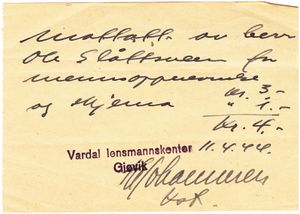 Mottatt av herr
Ole Slåttsveen for
og skjema kr. 3.-
" 1.-
Kr. 4.-
11.4.44.
Vardal lensmannskontor
Gjøvik
Johannesen